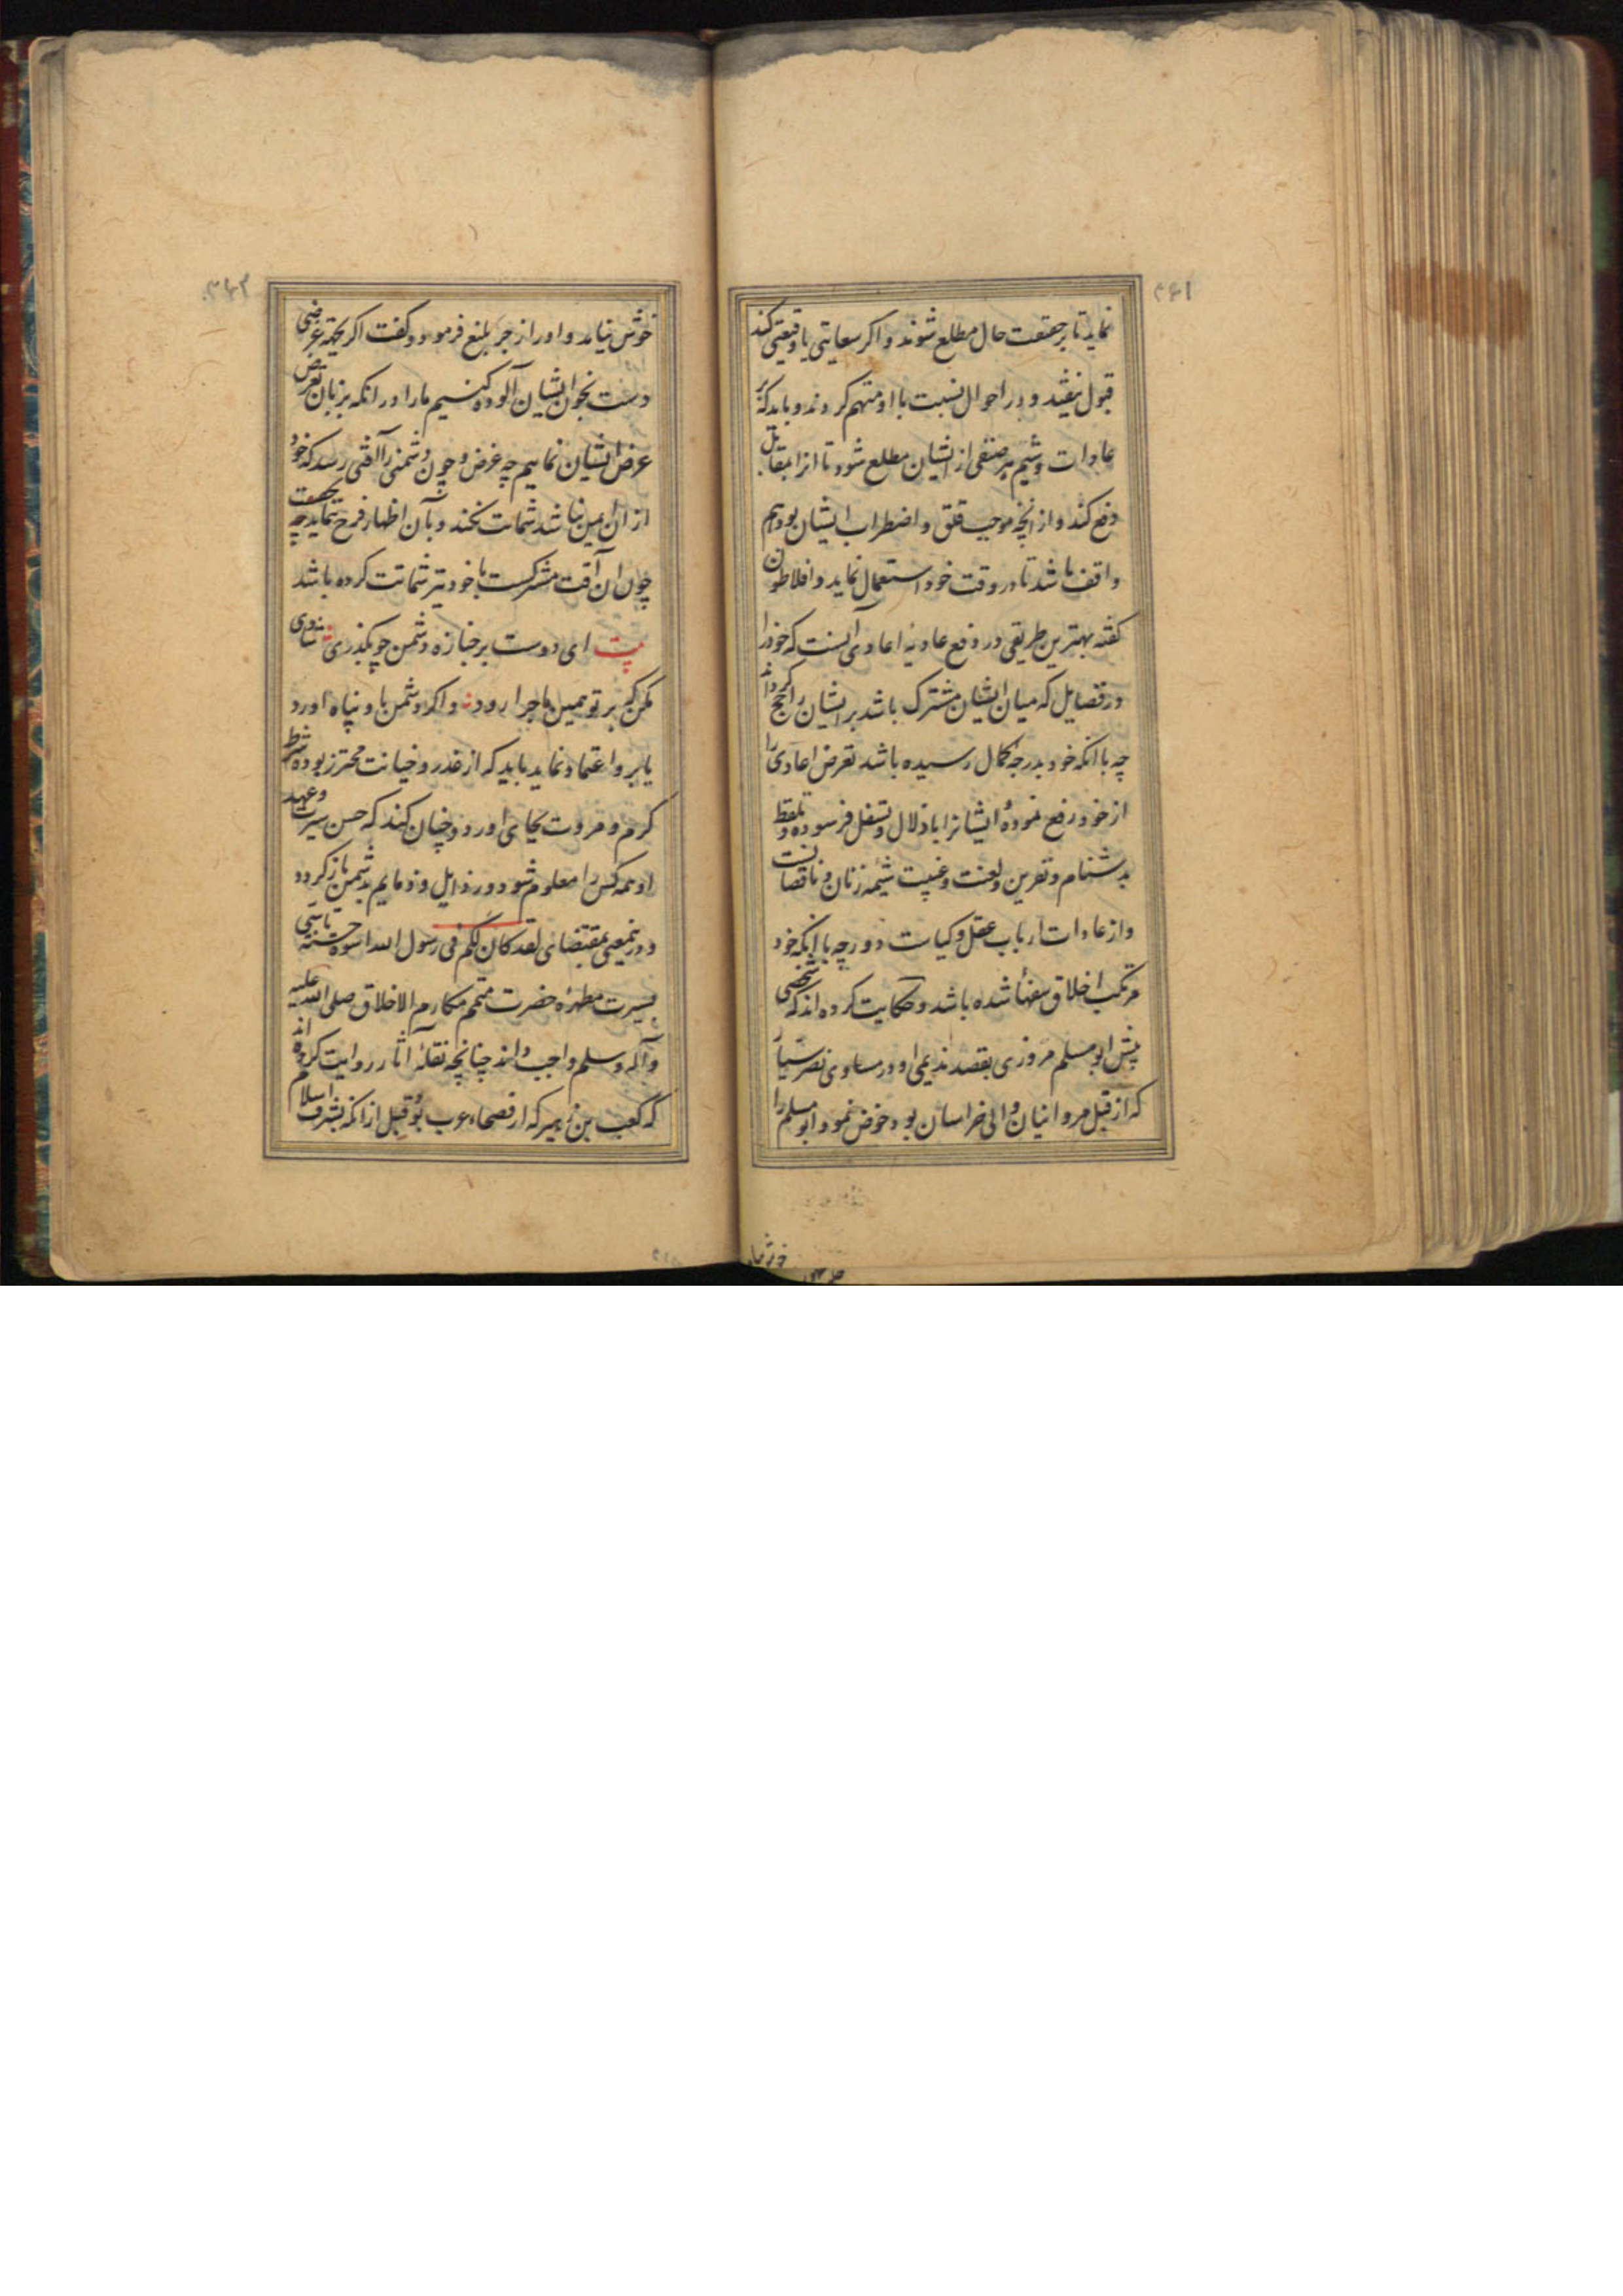 نماید تا بر حقیقت حال مطلع شوند و اکر سعایتی یا وقیعتی کند
قبول نیفتد و در احوال نسبت با او متهم کردند و باید که بر
عادات و شیم هر صنفی از ایشان مطلع شود تا انرا بمقابل
دفع کند و از انچه موجب قلق و اضطراب ایشان بود هم
واقف باشد تا در وقت خود استعمال نماید و افلاطون
کفته بهترین طریقی در دفع اعادی آنست که خود را
در فضایل که میان ایشان مشترک باشد بر ایشان راجح کرداند
چه با انکه خود بدرجهٔ کمال رسیده باشد تعرض اعادی را
از خود رفع نموده ایشانرا باذلال و تسفل فرسوده و تلفظ
بدشنام و نفرین و لعنت و غیبت شیمه زنان و ناقصانست
و از عادات ارباب عقل و کیاست دور چه با انکه خود
مرتکب اخلاق سفها شده باشد و حکایت کرده اند که شخصی
پیش ابو مسلم مروزی بقصد ندیمی او در مساوی نصر سیار
که از قبل مروانیان والی خراسان بود خوض نمود ابو مسلم را
خوش نیامد و او را زجر بلیغ فرمود و کفت اکر بجهة غرضی
دست بخون ایشان آلوده کنیم ما را در انکه بزبان تعرض
عرض ایشان نماییم چه غرض و چون دشمنی را آفتی رسد که خود
از ان ایمن نباشد شماتت نکند و بآن اظهار فرح ننماید چه بحقیقت
چون ان آفت مشترکست با خود نیز شماتت کرده باشد
بیت ای دوست بر جنازه دشمن چو بکذری شادی
مکن که بر تو همین ماجرا رود و اکر دشمن باو پناه اورد
یا برو اعتماد نماید باید که از غدر و خیانت محترز بوده شرط
کرم و مروت بجای اورد و چنان کند که حسن سیرت و عهد
او همه کس را معلوم شود و رذایل و ذمایم بدشمن باز کردد
و درینمعنی بمقتضای لقد کان لکم فی رسول الله اسوة حسنة تاسی
بسیرت مطهرهٔ حضرت متمم مکارم الاخلاق صلی الله علیه
وآله وسلم واجب داند چنانچه نقلهٔ اثار روایت کرده اند
که کعب بن زهیر که از فصحاء عرب بود قبل از انکه بشرف اسلام